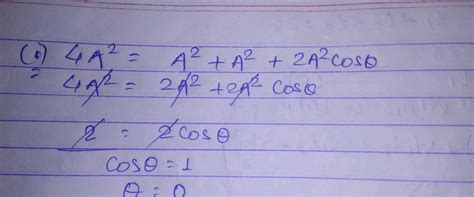 (i) 4A² = A² + A² + 2A²cosθ
4A² = 2A² + 2A² cosθ
2 = 2cosθ
cosθ = 1
θ = 0